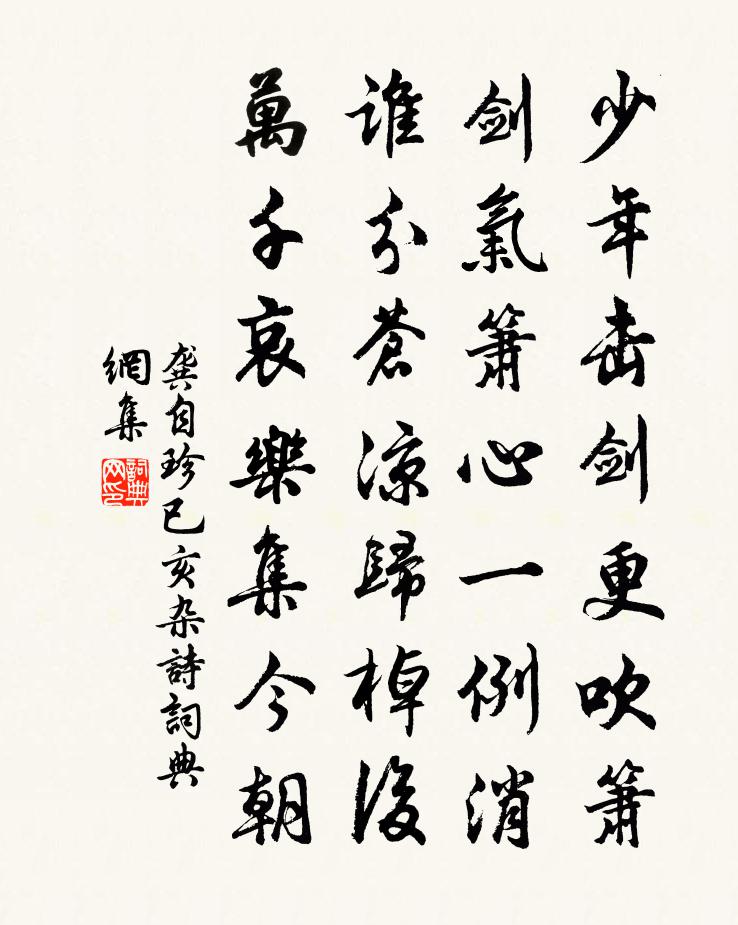 少年击劍更吹簫
劍氣簫心一例消
誰分蒼涼歸棹後
萬千哀樂集今朝
龚自珍己亥杂詩詞典
網集
詞典
网印